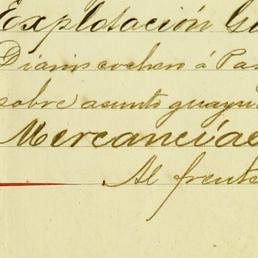 Explotación Gu
Diario cochero á Par
sobre asunto guayu
Mercancías
Al frente